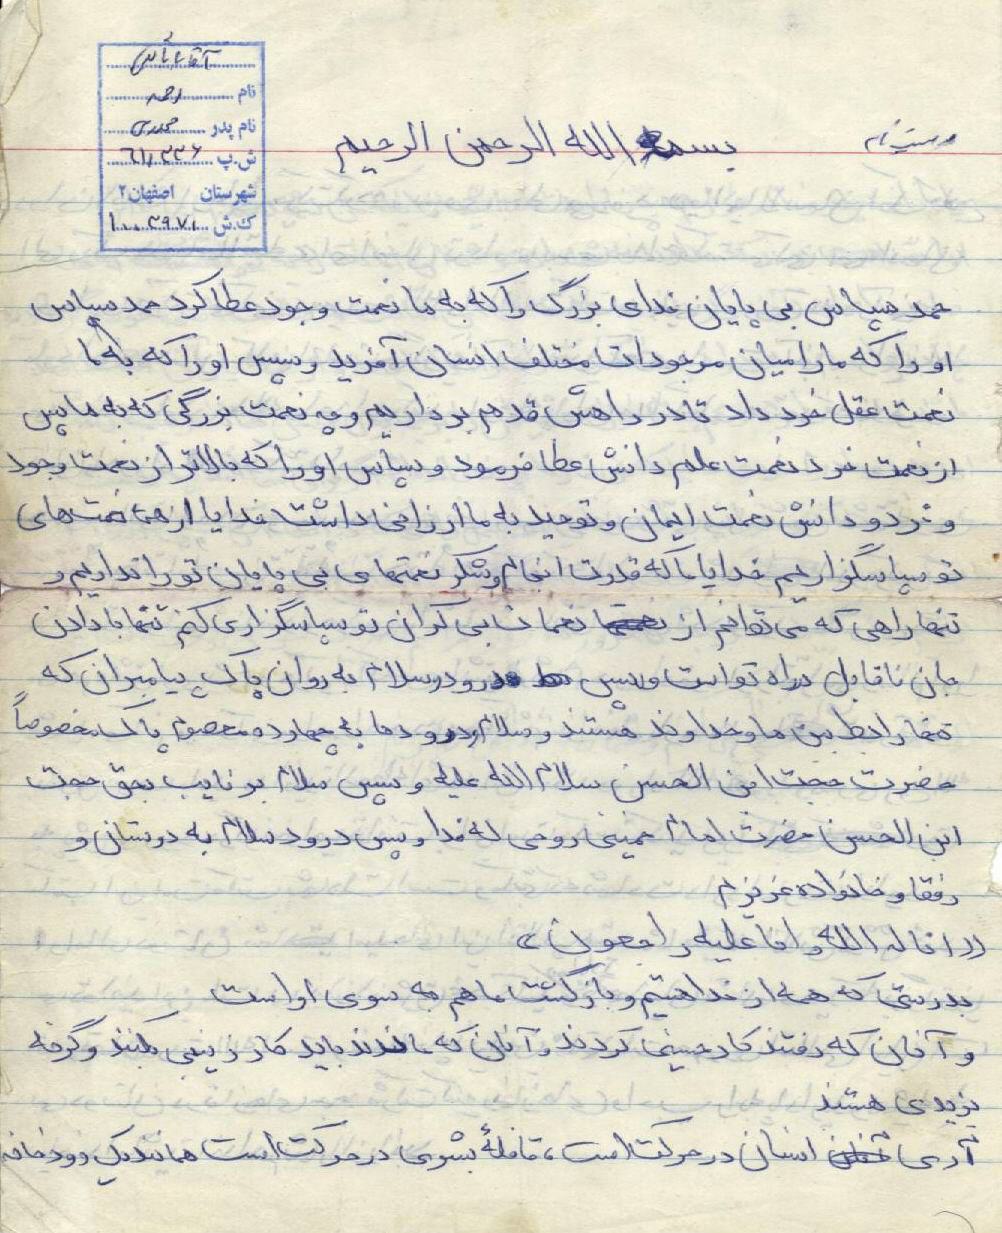 آقائی
نام احمد
نام پدر
ش.پ ۶۱/۳۳۶
شهرستان اصفهان ۲
ک.ش ۱۰۰۳۹۷۱
وصیت نامه
بسم الله الرحمن الرحیم
حمد سپاس بی پایان خدای بزرگ را که به ما نعمت وجود عطا کرد حمد سپاس
او را که ما را میان موجودات مختلف انسان آفرید و سپس او را که به ما
نعمت عقل خرد داد تا در راهش قدم برداریم و چه نعمت بزرگی که به ما پس
از نعمت خرد نعمت علم دانش عطا فرمود و سپاس او را که بالاتر از نعمت وجود
و خرد و دانش نعمت ایمان و توحید به ما ارزانی داشت خدایا از همه نعمت های
تو سپاسگزاریم خدایا ما که قدرت انجام شکر نعمتهای بی پایان تو را نداریم و
تنها راهی که می توانم از نعمات بی کران تو سپاسگزاری کنم تنها با دادن
جان ناقابل در راه تو است و سپس درود و سلام به روان پاک پیامبران که
تنها رابط بین ما و خداوند هستند و سلام و درود ما به چهارده معصوم پاک مخصوصاً
حضرت حجت ابن الحسن سلام الله علیه و سپس سلام بر نایب بحق حجت
ابن الحسن حضرت امام خمینی روحی له فدا و سپس درود سلام به دوستان و
رفقا و خانواده عزیزم
((انا لله و انا علیه راجعون))
بدرستی که همه از خدا هستیم و بازگشت ما هم به سوی او است
و آنان که رفتند کار حسینی کردند و آنان که ماندند باید کار زینبی بکنند و گرنه
یزیدی هستند
آری انسان در حرکت است، قافلهٔ بشری در حرکت است همانند یک رودخانه